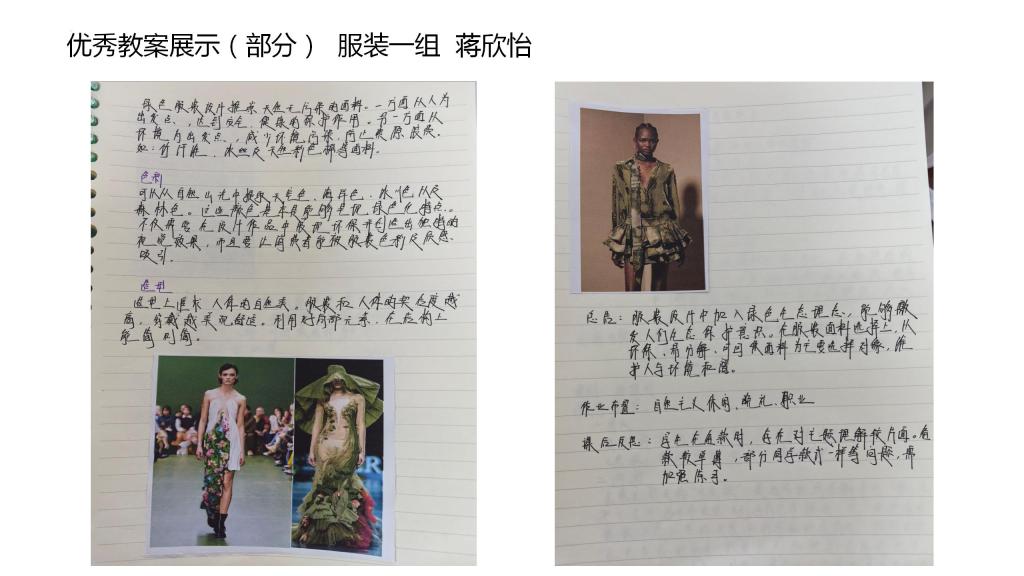 优秀教案展示（部分） 服装一组 蒋欣怡
绿色服装设计提采天然无污染的面料。一方面从人为
出发点，达到安全、健康的保护作用。另一方面从
环境为出发点，减少环境污染，防止资源浪费。
如：竹纤维、冰丝及天然彩色棉等面料。
色彩
可以从自然山光中提取天空色、海洋色、冰川色以及
森林色。这些颜色基本能够呈现绿色化特点。
不仅需要在设计作品中展现环保并创造出独特的
视觉效果，而且要让 被服装色彩及质感
吸引。
造型
造型上追求人体的自然美。服装和人体的契合度越
高，穿戴越美观舒适。利用好局部元素，在结构上
能简则简。
总结：服装设计中加入绿色生态理念，能够激
发人们生态保护意识。在服装面料选择上，从
环保、易分解、可回收面料为主要选择对象，维
护人与环境和谐。
作业布置：自然主义休闲、晚礼、职业
课后反思：学生在画款时，存在对主题理解较片面。
款式单薄，部分同学款式一样等问题，需
加强练习。